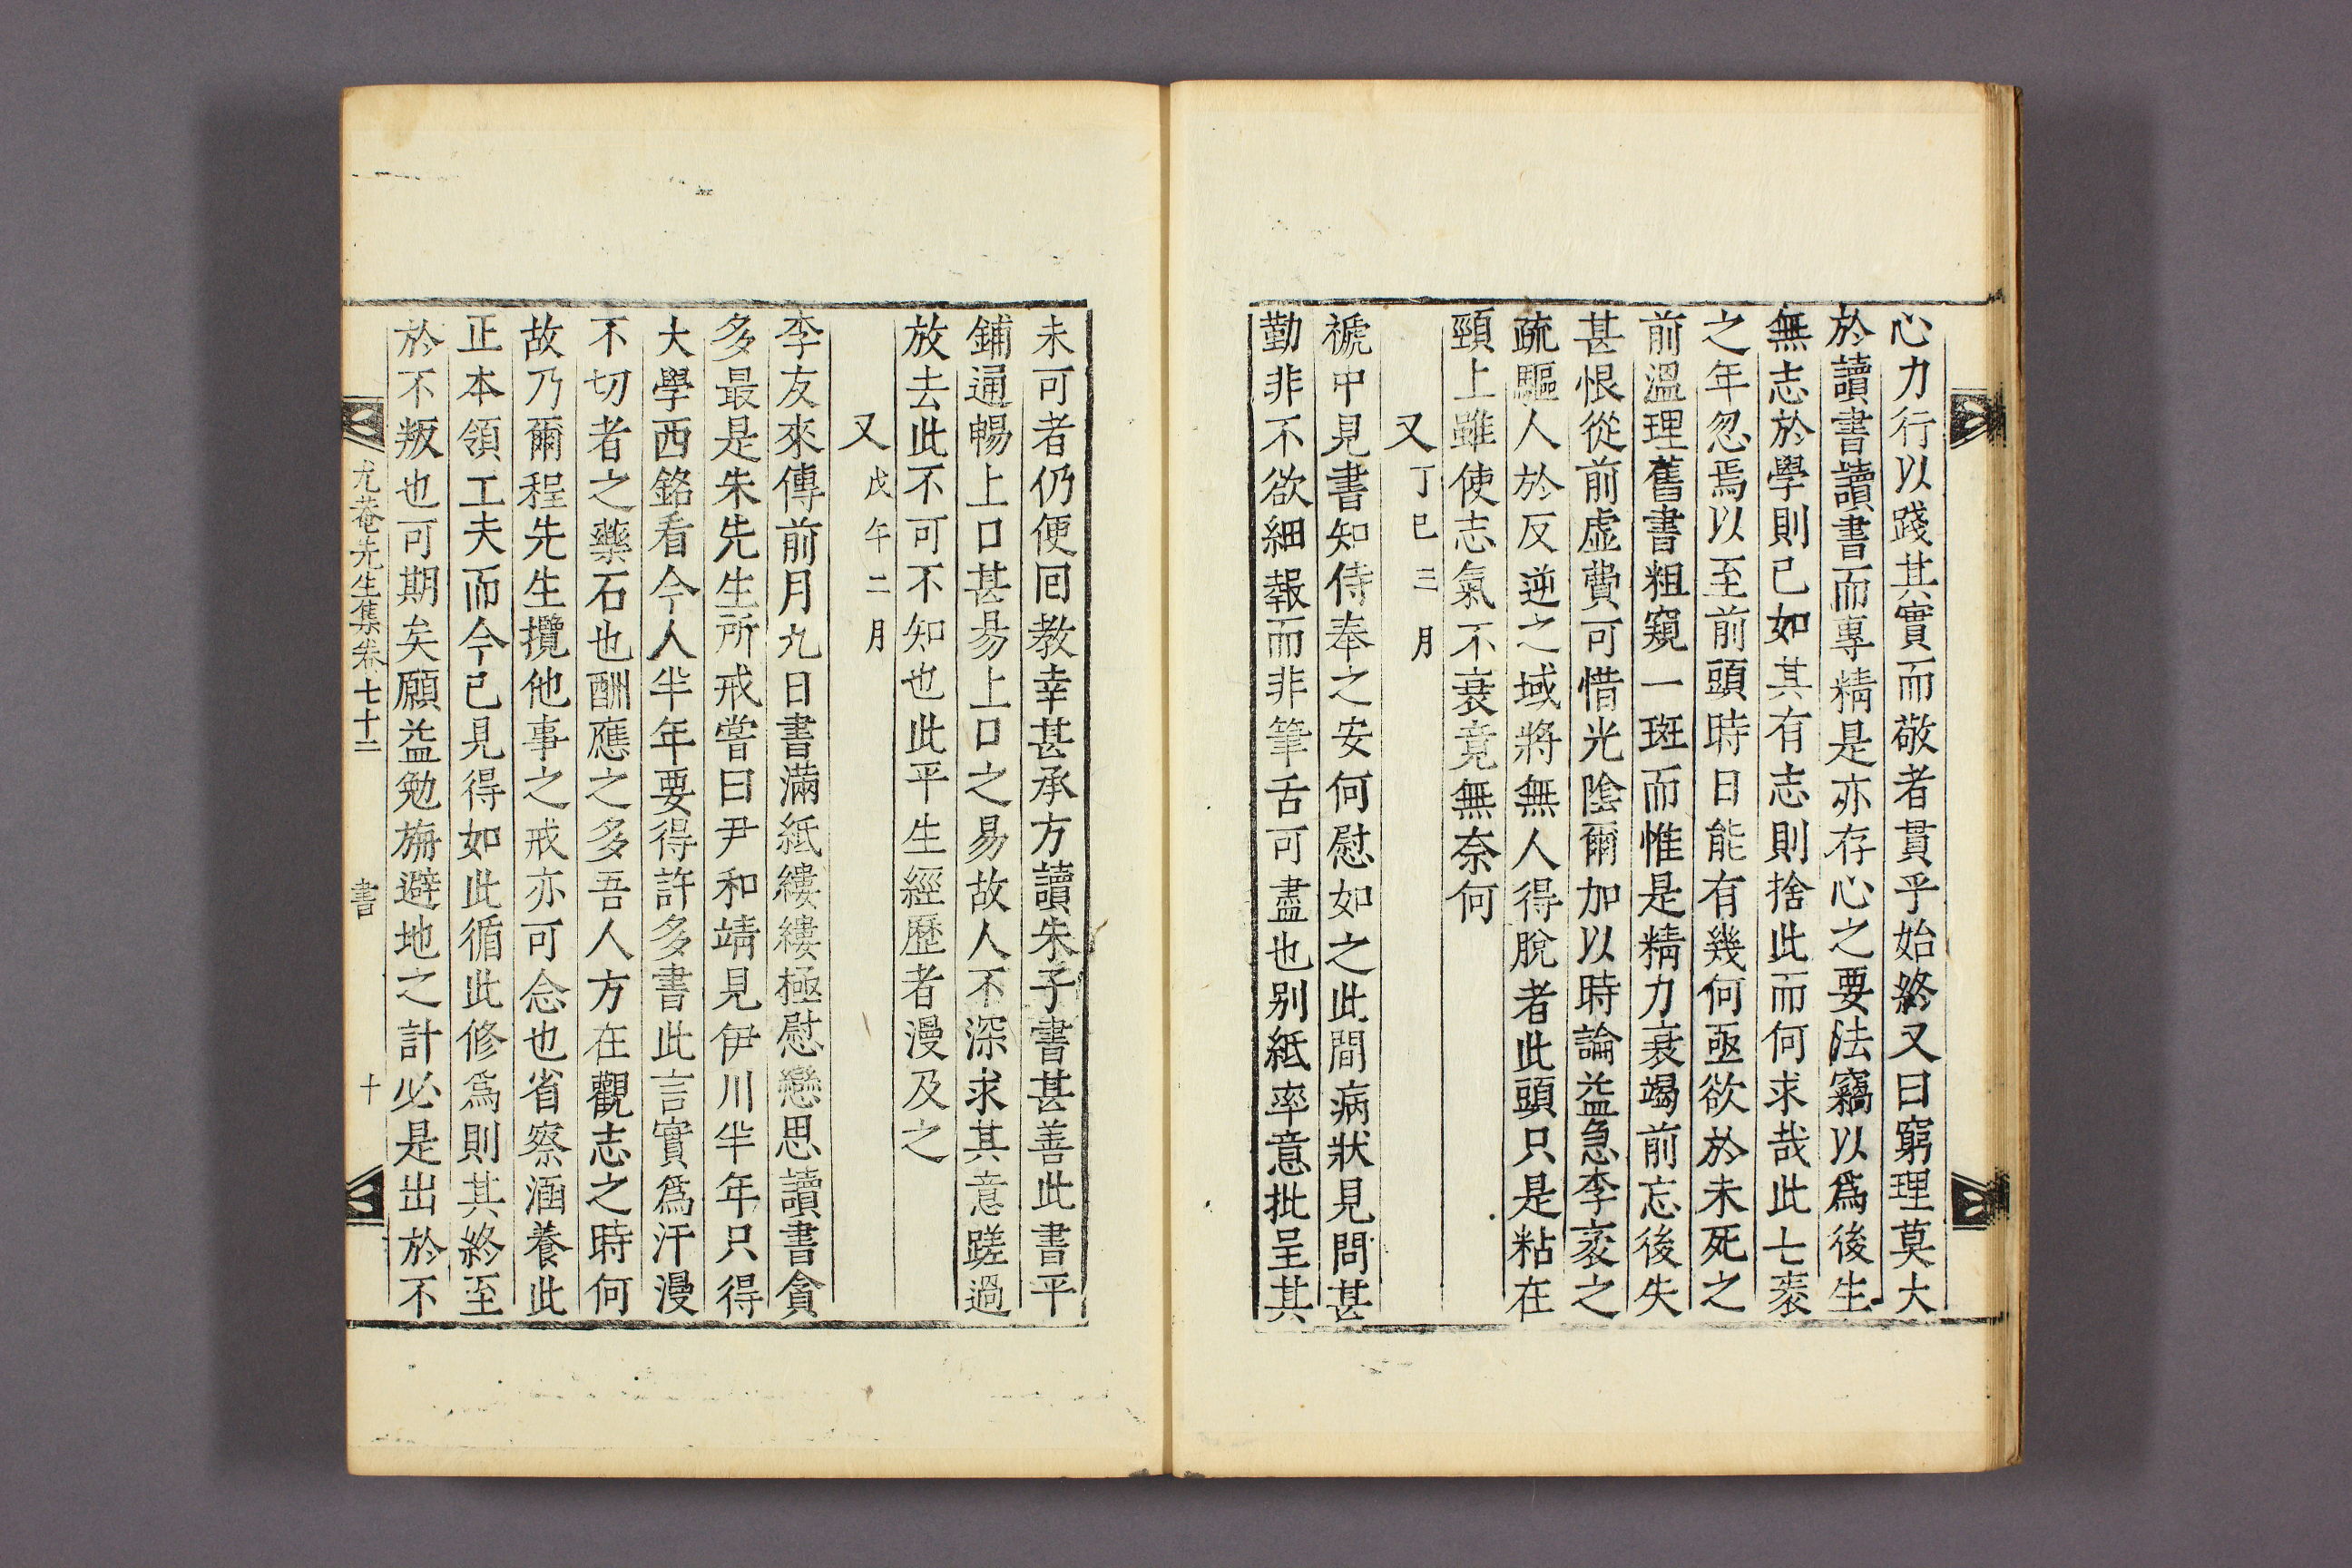 心力行以踐其實而敬者貫乎始終又曰窮理莫大
於讀書讀書而專精是亦存心之要法竊以爲後生
無志於學則已如其有志則捨此而何求哉此七袠
之年忽焉以至前頭時日能有幾何亟欲於未死之
前溫理舊書粗窺一斑而惟是精力衰竭前忘後失
甚恨從前虛費可惜光陰爾加以時論益急李袤之
疏驅人於反逆之域將無人得脫者此頭只是粘在
頸上雖使志氣不衰竟無奈何
又 丁巳三月
褫中見書知侍奉之安何慰如之此間病狀見問甚
勤非不欲細報而非筆舌可盡也別紙率意批呈其
未可者仍便回敎幸甚承方讀朱子書甚善此書平
鋪通暢上口甚易上口之易故人不深求其意蹉過
放去此不可不知也此平生經歷者漫及之
又 戊午二月
李友來傳前月九日書滿紙縷縷極慰戀思讀書貪
多最是朱先生所戒嘗曰尹和靖見伊川半年只得
大學西銘看今人半年要得許多書此言實爲汗漫
不切者之藥石也酬應之多吾人方在觀志之時何
故乃爾程先生攬他事之戒亦可念也省察涵養此
正本領工夫而今已見得如此循此修爲則其終至
於不叛也可期矣願益勉旃避地之計必是出於不
尤菴先生集卷七十二 書 十